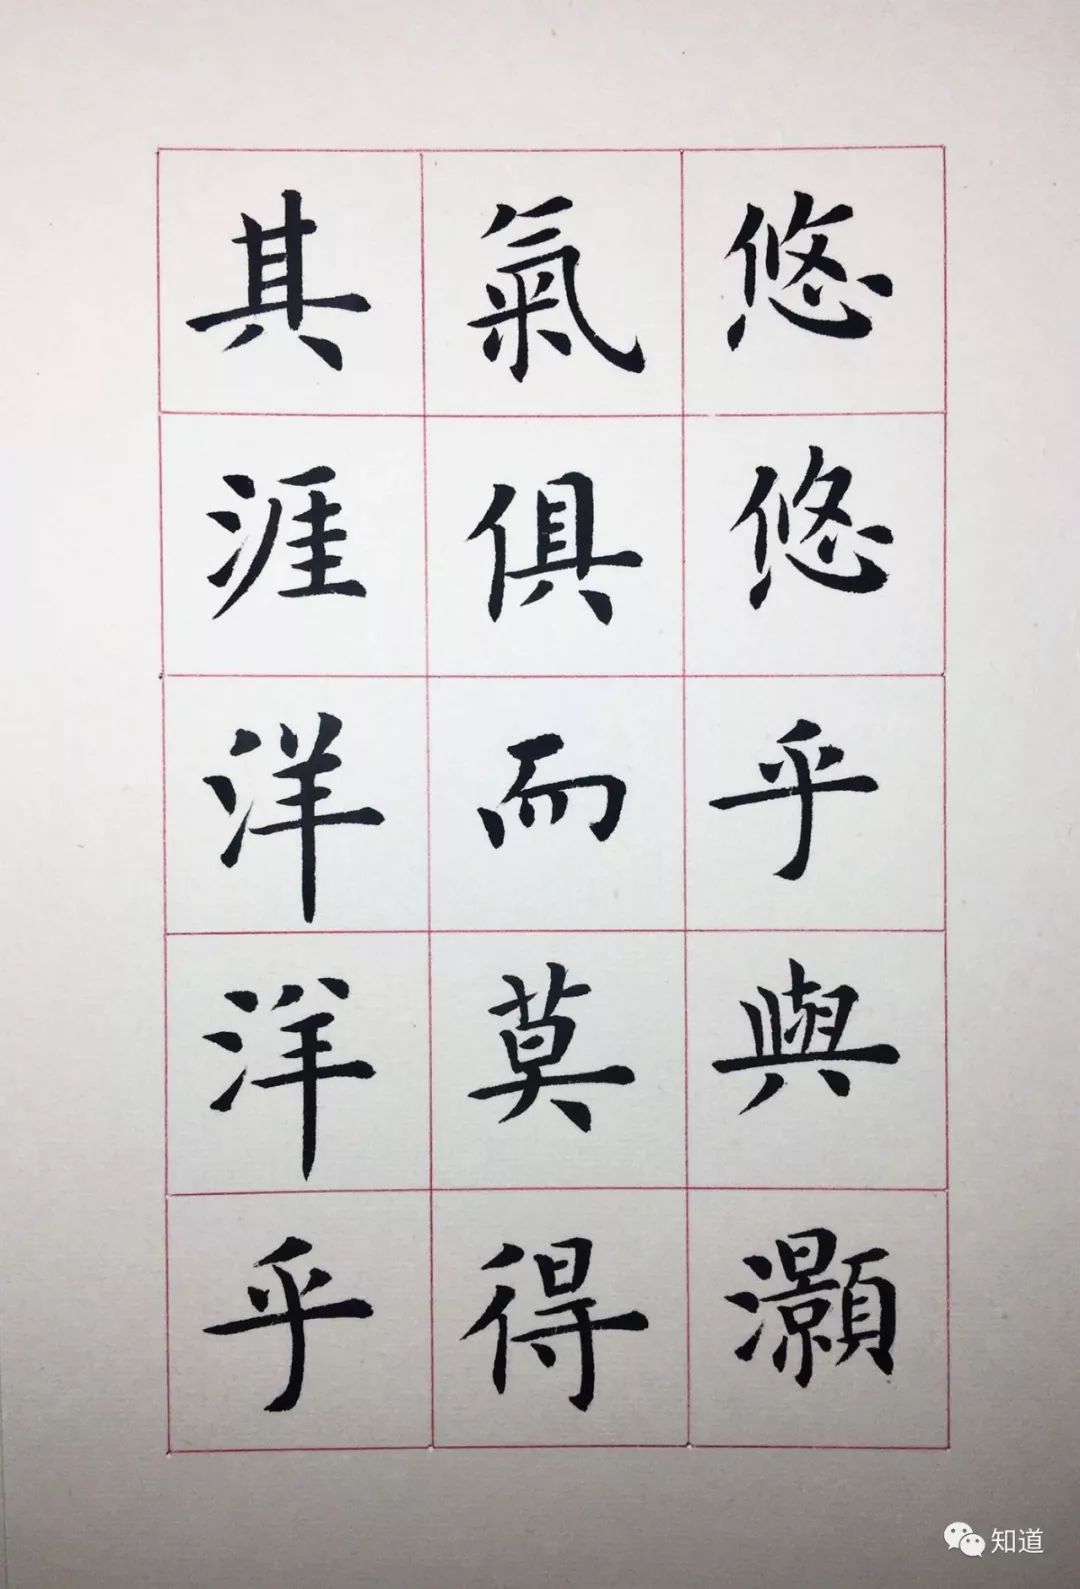 悠悠乎與灝
氣俱而莫得
其涯洋洋乎
知道